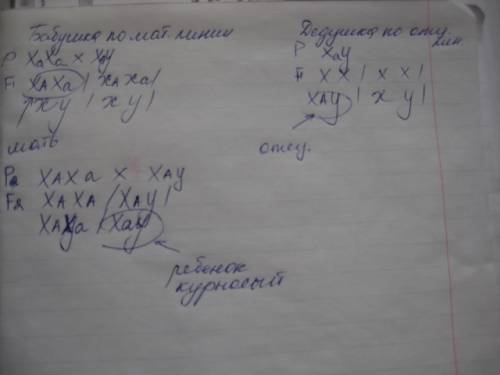 Бабушка по мат. линии
P XaXa × XaУ
F1 XAXa | XAXa |
| XУ | XУ |
мать
P2 XAXa × XAУ
F2 XAXA | XAУ |
XAXa | XaУ
ребенок
курносый
Дедушка по отц. лин.
P XaУ
F1 XX | XX |
XAУ | XУ |
отец.